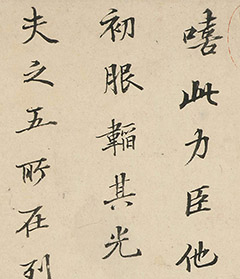 嘻此力臣他
初服韜其光
夫之五所在列